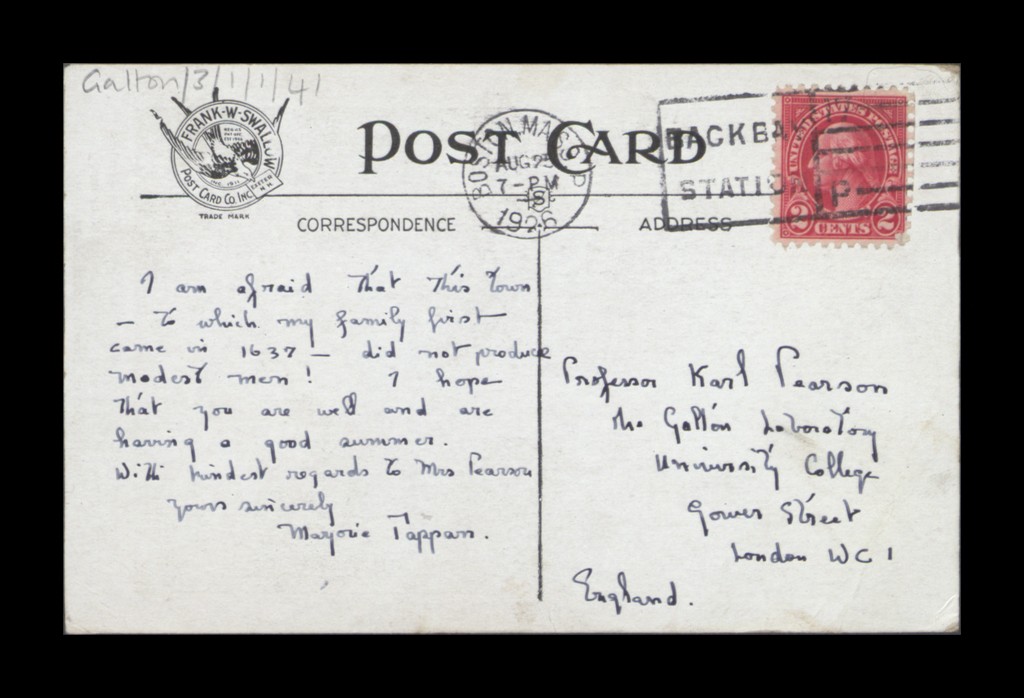 Galton/3/1/1/41
FRANK·W·SWALLOW
POST CARD CO. INC.
EXETER N.H.
TRADE MARK
POST CARD
BOSTON, MASS.
AUG 25
7-PM
S
1926
BACK BAY
STATION
UNITED STATES POSTAGE
2 CENTS 2
CORRESPONDENCE
ADDRESS
I am afraid that this town
— to which my family first
came in 1637 — did not produce
modest men! I hope
that you are well and are
having a good summer.
With kindest regards to Mrs Pearson
yours sincerely
Marjorie Tappan.
Professor Karl Pearson
The Galton Laboratory
University College
Gower Street
London WC1
England.